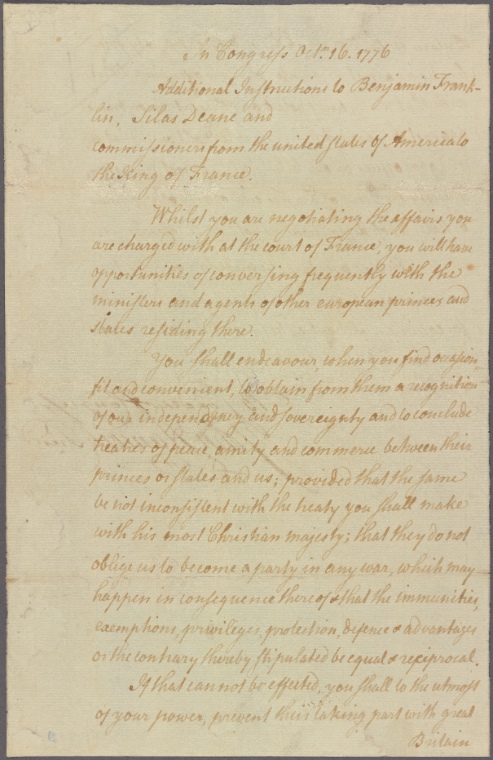 In Congress Octr. 16. 1776
Additional Instructions to Benjamin Frank-
lin, Silas Deane and
commissioners from the united states of America to
the King of France.
Whilst you are negotiating the affairs you
are charged with at the court of France, you will have
opportunities of conversing frequently with the
ministers and agents of other european princes and
states residing there.
You shall endeavour, when you find occasion
fit and convenient, to obtain from them a recognition
of our independency and sovereignty and to conclude
treaties of peace, amity and commerce between their
princes or states and us; provided that the same
be not inconsistent with the treaty you shall make
with his most Christian majesty; that they do not
oblige us to become a party in any war, which may
happen in consequence thereof & that the immunities,
exemptions, privileges, protection, defence & advantages
or the contrary thereby stipulated be equal & reciprocal.
If that cannot be effected, you shall to the utmost
of your power, prevent their taking part with great
Britain